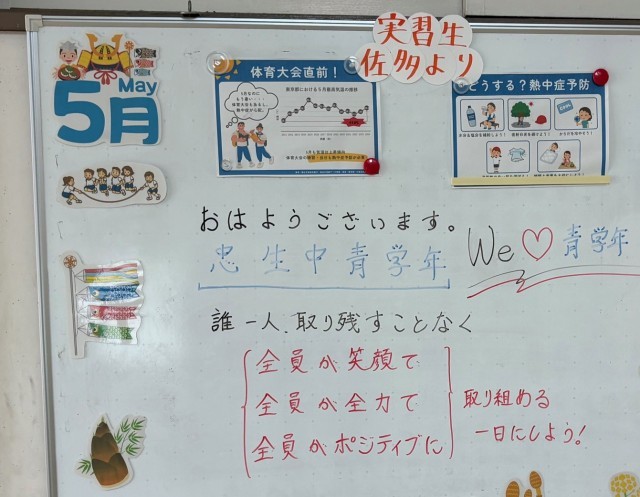 実習生
佐多より
May
5月
体育大会直前！
どうする？熱中症予防
おはようございます。
忠生中青学年
We♡青学年
誰一人、取り残すことなく
全員が笑顔で
全員が全力で
全員がポジティブに
取り組める
一日にしよう！